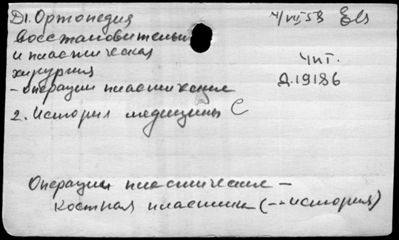 Д1. Ортопедия 4/VII 58
восстановительн
и пластическая Чит.
хирургия Д.19186
- операции пластические
2. История медицины С
Операции пластические -
костная пластика (-- история)